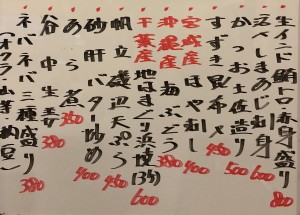 生インド鮪トロ赤身盛り 800
活〆しまあじ刺身 600
かつお土佐造り 500
すずき昆布〆 450
宮城産 ほや刺し 400
沖縄産 海ぶどう 380
千葉産 地はまぐり浜焼(3ヶ) 600
帆立磯辺天ぷら 450
砂肝バター炒め 400
あら煮 350
谷中生姜 380
ネバネバ三種盛り
(オクラ・山芋・納豆) 380